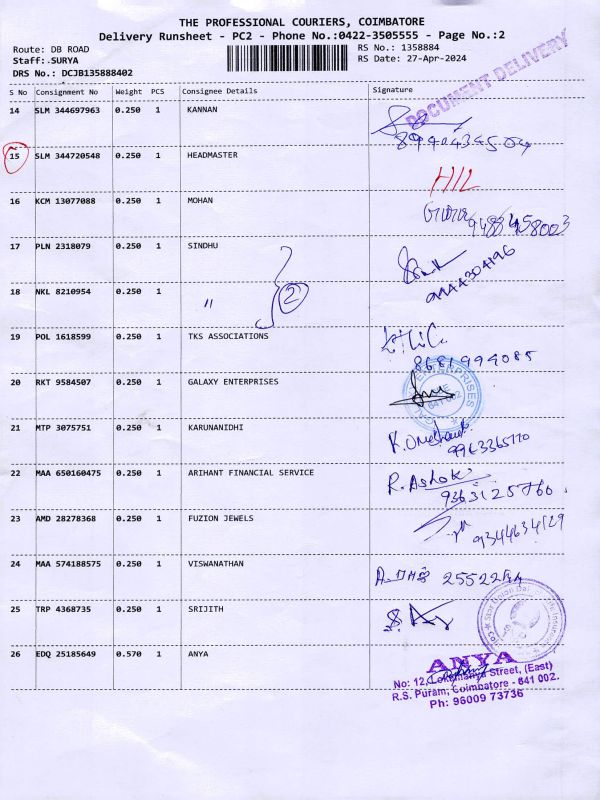 THE PROFESSIONAL COURIERS, COIMBATORE
Delivery Runsheet - PC2 - Phone No.:0422-3505555 - Page No.:2
Route: DB ROAD
RS No.: 1358884
Staff:.SURYA
RS Date: 27-Apr-2024
DRS No.: DCJB135888402
DOCUMENT DELIVERY
S No Consignment No Weight PCS Consignee Details Signature
14 SLM 344697963 0.250 1 KANNAN
15 SLM 344720548 0.250 1 HEADMASTER
16 KCM 13077088 0.250 1 MOHAN
17 PLN 2318079 0.250 1 SINDHU
18 NKL 8210954 0.250 1 " 2
19 POL 1618599 0.250 1 TKS ASSOCIATIONS
8681994085
20 RKT 9584507 0.250 1 GALAXY ENTERPRISES
ENTERPRISES
21 MTP 3075751 0.250 1 KARUNANIDHI
22 MAA 650160475 0.250 1 ARIHANT FINANCIAL SERVICE R. Ashok
23 AMD 28278368 0.250 1 FUZION JEWELS
24 MAA 574188575 0.250 1 VISWANATHAN
25 TRP 4368735 0.250 1 SRIJITH
26 EDQ 25185649 0.570 1 ANYA
ANYA
No: 12, Lokamanya Street, (East)
R.S. Puram, Coimbatore - 641 002.
Ph: 96009 73736